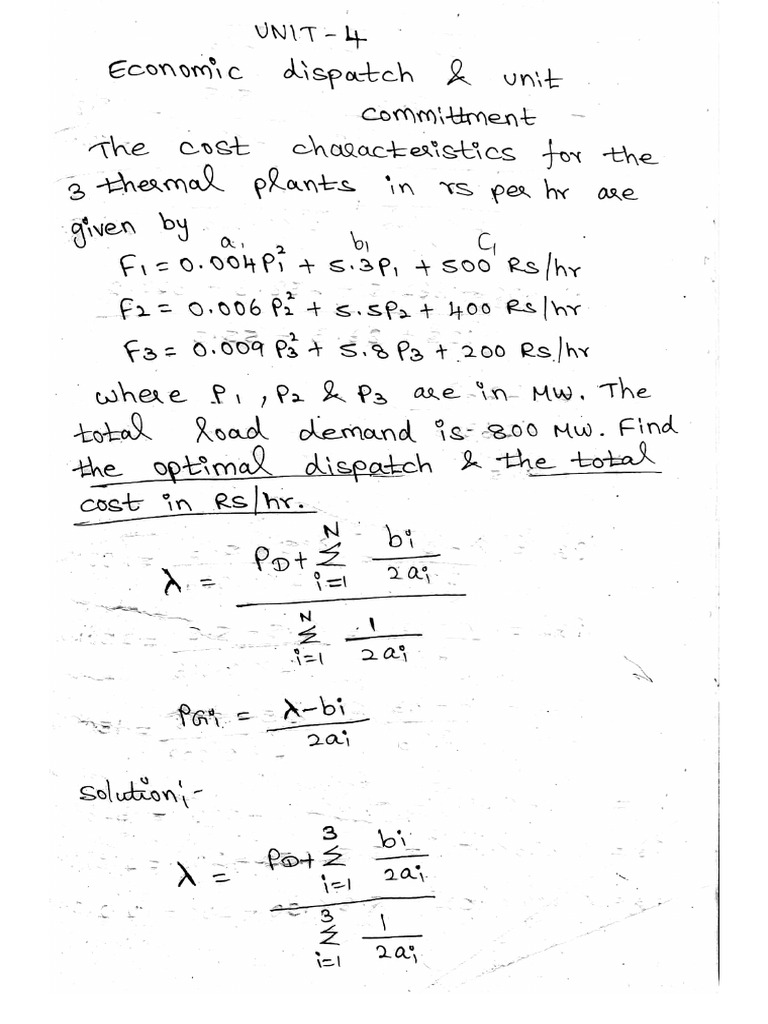 UNIT-4
Economic dispatch & unit
committment
The cost characteristics for the
3 thermal plants in rs per hr are
given by
a₁ b₁ C₁
F₁ = 0.004P₁² + 5.3P₁ + 500 Rs/hr
F₂ = 0.006 P₂² + 5.5P₂ + 400 Rs/hr
F₃ = 0.009 P₃² + 5.8 P₃ + 200 Rs/hr
where P₁, P₂ & P₃ are in MW. The
total load demand is 800 MW. Find
the optimal dispatch & the total
cost in Rs/hr.
λ = (P_D + Σ_{i=1}^{N} bi/2ai) / (Σ_{i=1}^{N} 1/2ai)
P_Gi = (λ-bi)/2ai
Solution:-
λ = (P_D + Σ_{i=1}^{3} bi/2ai) / (Σ_{i=1}^{3} 1/2ai)